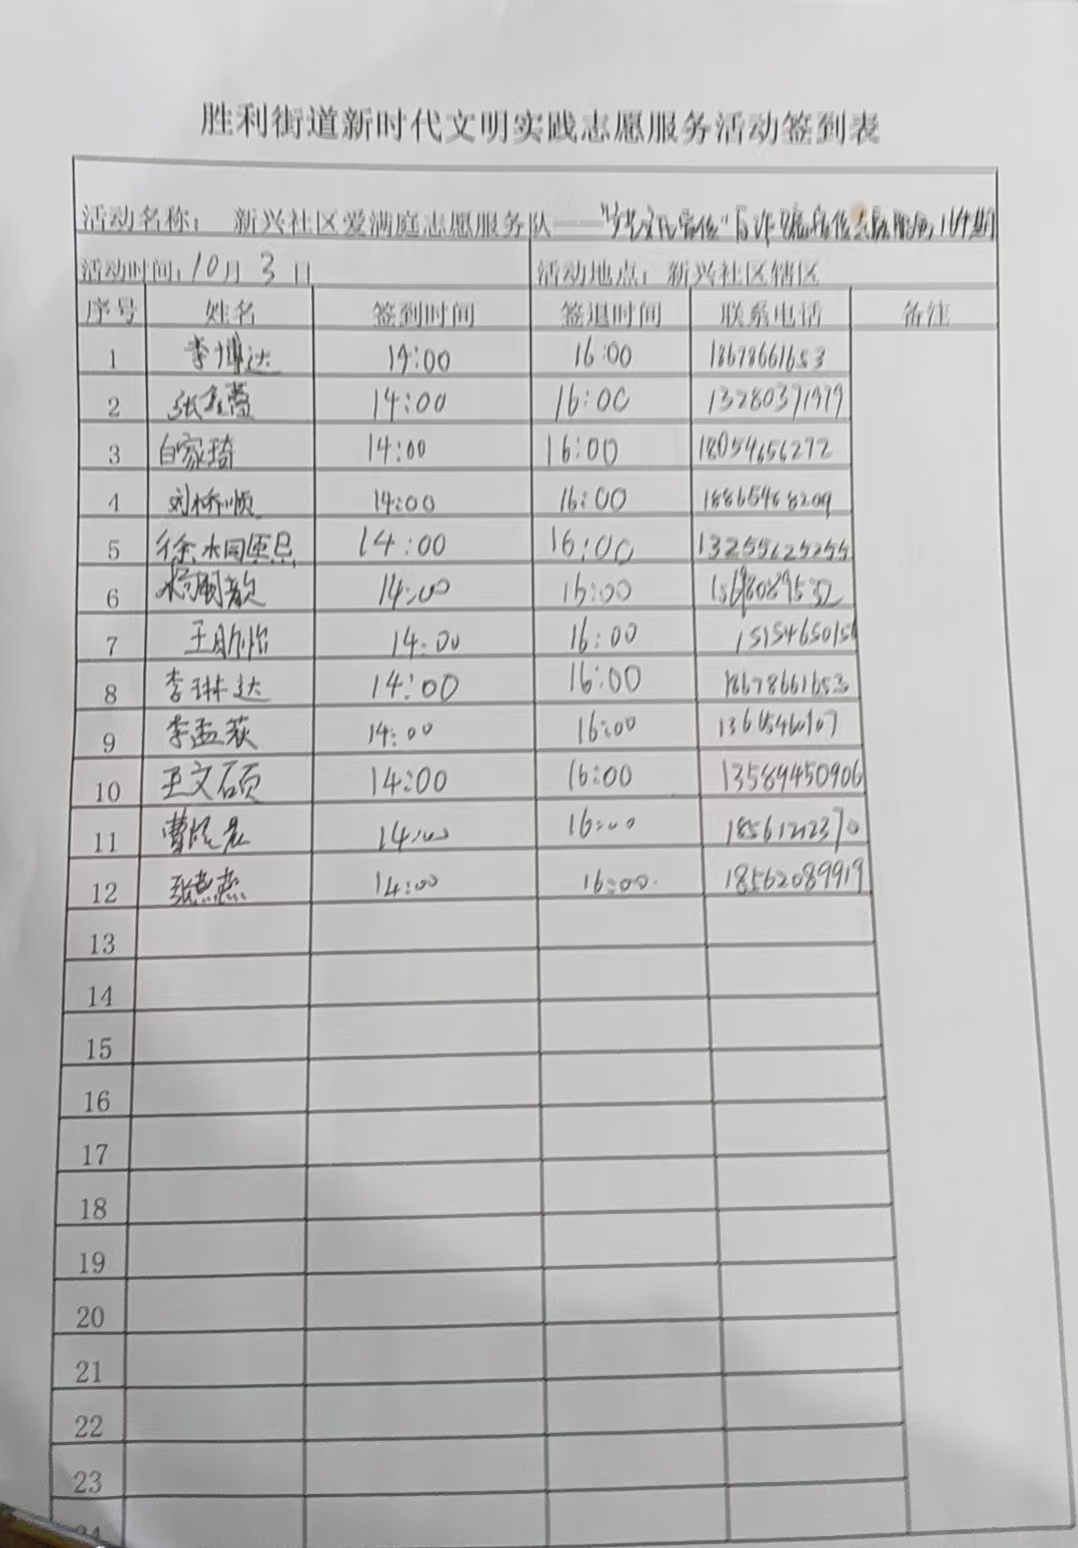 胜利街道新时代文明实践志愿服务活动签到表
活动名称： 新兴社区爱满庭志愿服务队——
活动时间：10月3日 活动地点：新兴社区辖区
序号 姓名 签到时间 签退时间 联系电话 备注
1 李博达 14:00 16:00 18678661653
2 张 14:00 16:00 13280371979
3 白家琦 14:00 16:00 18054656272
4 刘桥顺 14:00 16:00 18865468209
5 徐 14:00 16:00 13255625255
6 杨 14:00 16:00
7 王 怡 14:00 16:00
8 李琳达 14:00 16:00 18678661653
9 李孟荻 14:00 16:00
10 王文硕 14:00 16:00 13589450906
11 曹 14:00 16:00
12 张燕燕 14:00 16:00 18562089919
13
14
15
16
17
18
19
20
21
22
23
24